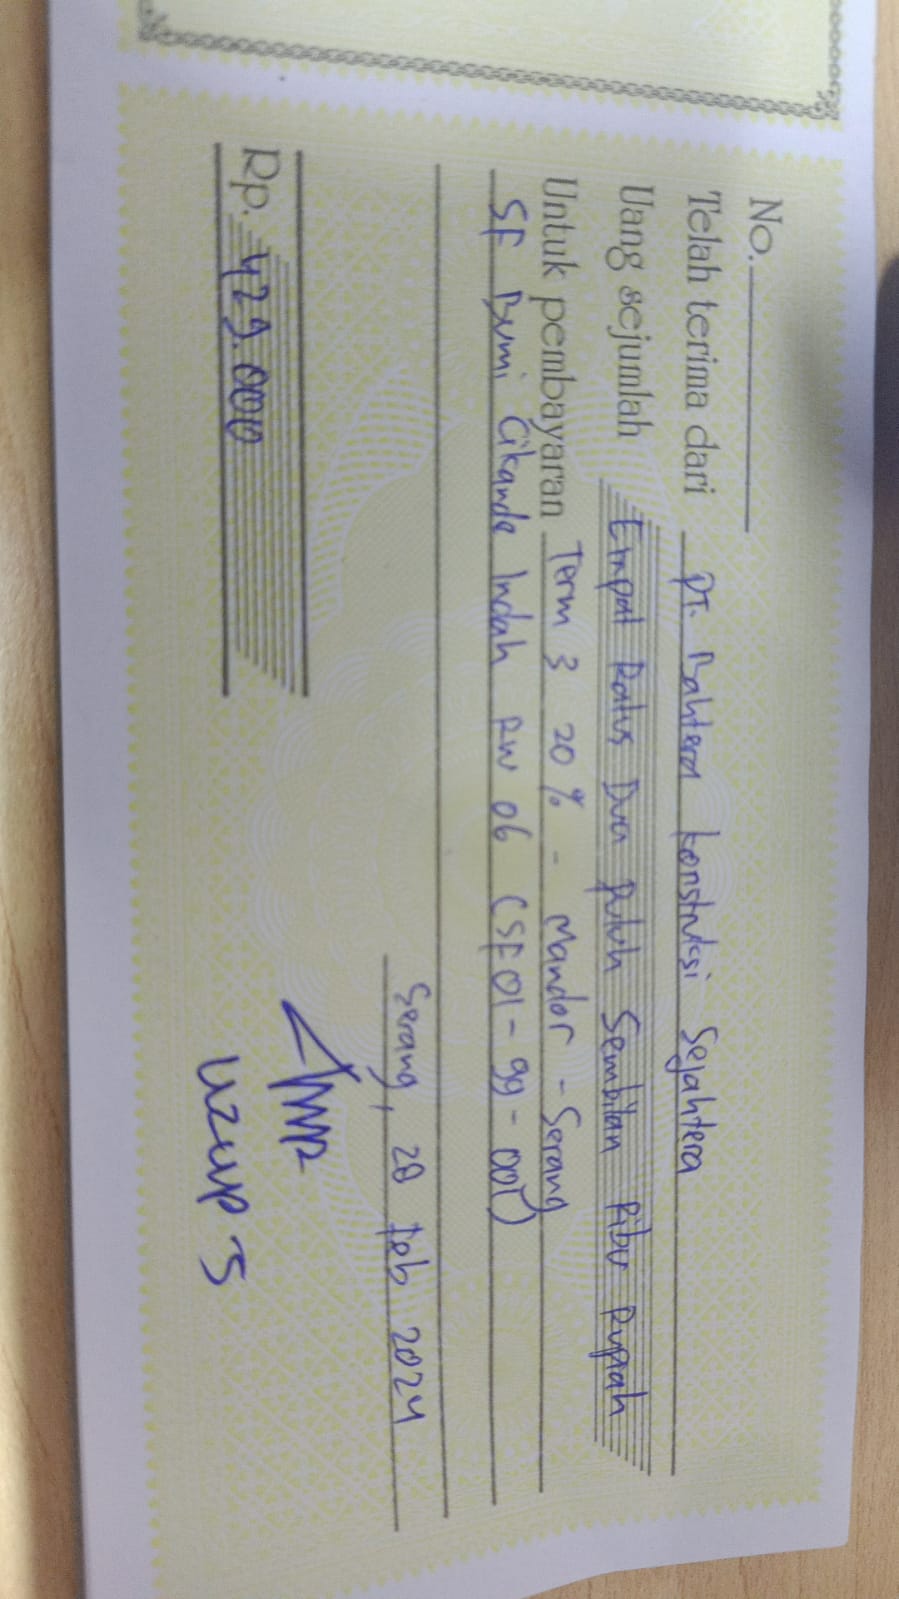 No.
Telah terima dari PT. Bahtera Konstruksi Sejahtera
Uang sejumlah Empat Ratus Dua Puluh Sembilan Ribu Rupiah
Untuk pembayaran Term 3 20% - Mandor - Serang
SF Bumi Cikande Indah RW 06 (SF01-99-001)
Serang, 28 Feb 2024
Rp. 429.000